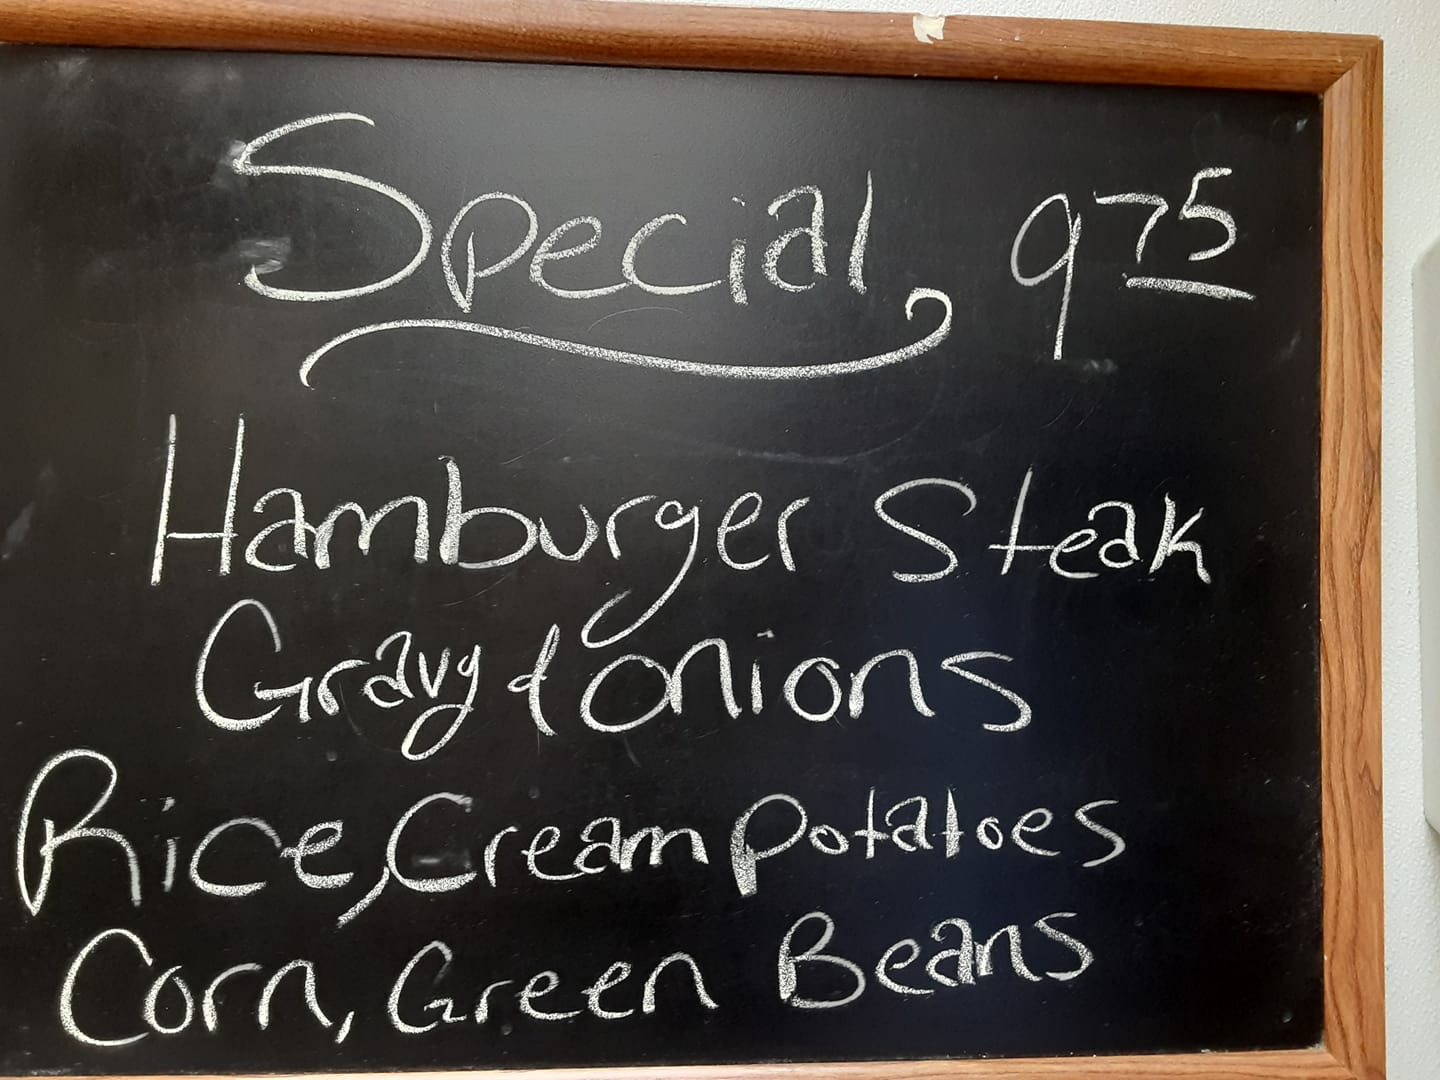 Special 9 75
Hamburger Steak
Gravy & Onions
Rice, Cream Potatoes
Corn, Green Beans